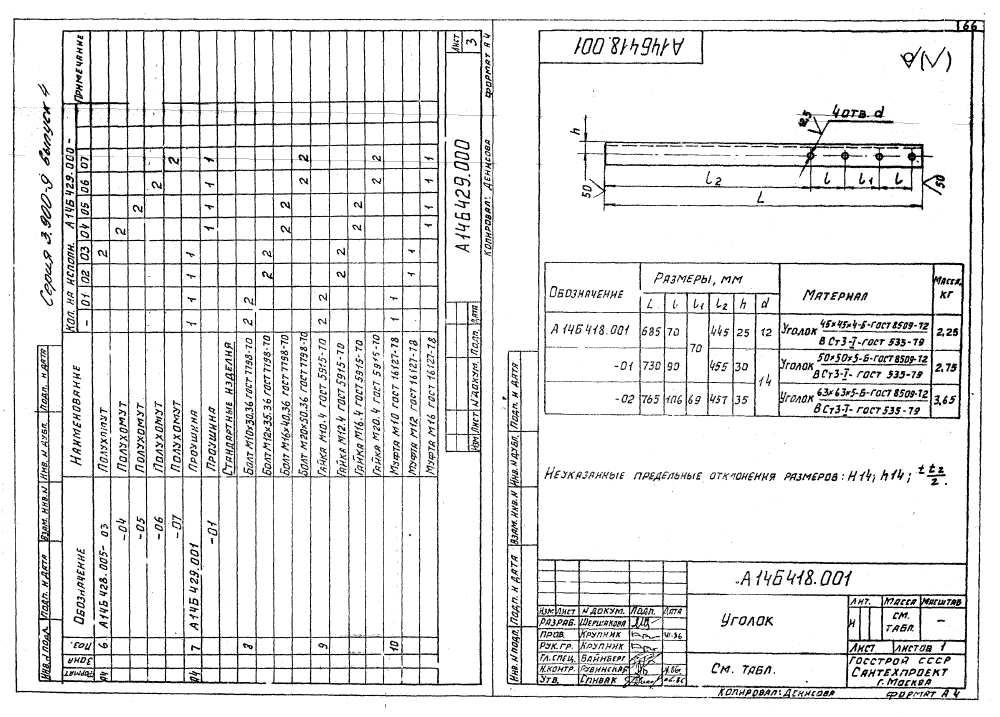 166
Серия 3.900-9 выпуск 4
Формат
Зона
Поз.
Обозначение
Наименование
Кол. на исполн. А14Б429.000-
- 01 02 03 04 05 06 07
Примечание
А4 6 А14Б428.005-03 Полухомут 2
-04 Полухомут 2
-05 Полухомут 2
-06 Полухомут 2
-07 Полухомут 2
А4 7 А14Б429.001 Проушина 1 1 1 1
-01 Проушина 1 1 1 1
Стандартные изделия
8 Болт М10×30.36 ГОСТ 7798-70 2 2
Болт М12×35.36 ГОСТ 7798-70 2 2
Болт М16×40.36 ГОСТ 7798-70 2 2
Болт М20×50.36 ГОСТ 7798-70 2 2
9 Гайка М10.4 ГОСТ 5915-70 2 2
Гайка М12.4 ГОСТ 5915-70 2 2
Гайка М16.4 ГОСТ 5915-70 2 2
Гайка М20.4 ГОСТ 5915-70 2 2
10 Муфта М10 ГОСТ 16127-78 1 1
Муфта М12 ГОСТ 16127-78 1 1
Муфта М16 ГОСТ 16127-78 1 1 1 1
Инв.№подл. Подп. и дата Взам. инв.№ Инв.№дубл. Подп. и дата
Изм Лист №докум. Подп. Дата
А14Б429.000
Лист
3
Копировал: Денисова
Формат А4
А14Б418.001
4 отв. d
12,5
h
50
50
l2
l
l1
l
L
Обозначение
Размеры, мм
Материал
Масса, кг
L l l1 l2 h d
А14Б418.001 685 70 70 445 25 12 Уголок 45×45×4-Б-ГОСТ 8509-72 2,25
В Ст3-I-ГОСТ 535-79
-01 730 90 455 30 14 Уголок 50×50×5-Б-ГОСТ 8509-72 2,75
В Ст3-I-ГОСТ 535-79
-02 765 106 69 457 35 Уголок 63×63×5-Б-ГОСТ 8509-72 3,65
В Ст3-I-ГОСТ 535-79
Неуказанные предельные отклонения размеров: H14; h14; ± t2/2.
Инв.№подл. Подп. и дата Взам. инв.№ Инв.№дубл. Подп. и дата
А14Б418.001
Изм Лист №докум. Подп. Дата
Разраб. Шершакова
Пров. Крупник
Рук.гр. Крупник
Гл.спец. Вайнберг
Н.контр. Рувинская
Утв. Спивак
Уголок
См. табл.
Лит. Масса Масштаб
И См. табл. -
Лист Листов 1
Госстрой СССР
Сантехпроект
г. Москва
Копировал: Денисова
Формат А4